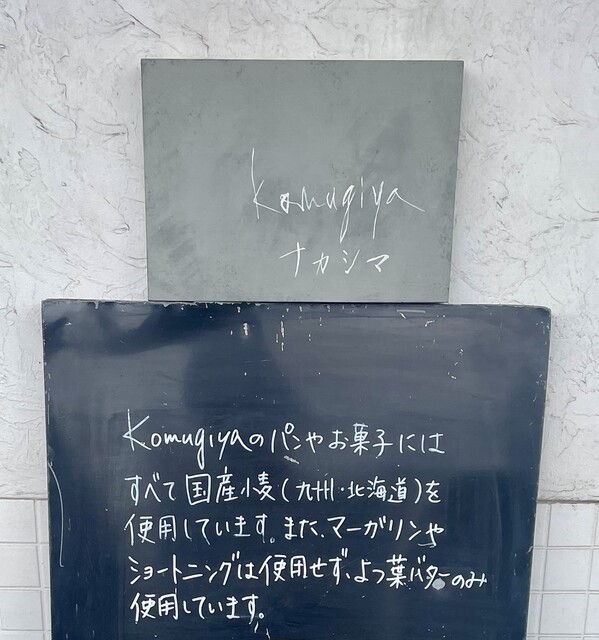 komugiya
ナカシマ
Komugiyaのパンやお菓子には
すべて国産小麦(九州・北海道)を
使用しています。また、マーガリンや
ショートニングは使用せず、よつ葉バターのみ
使用しています。